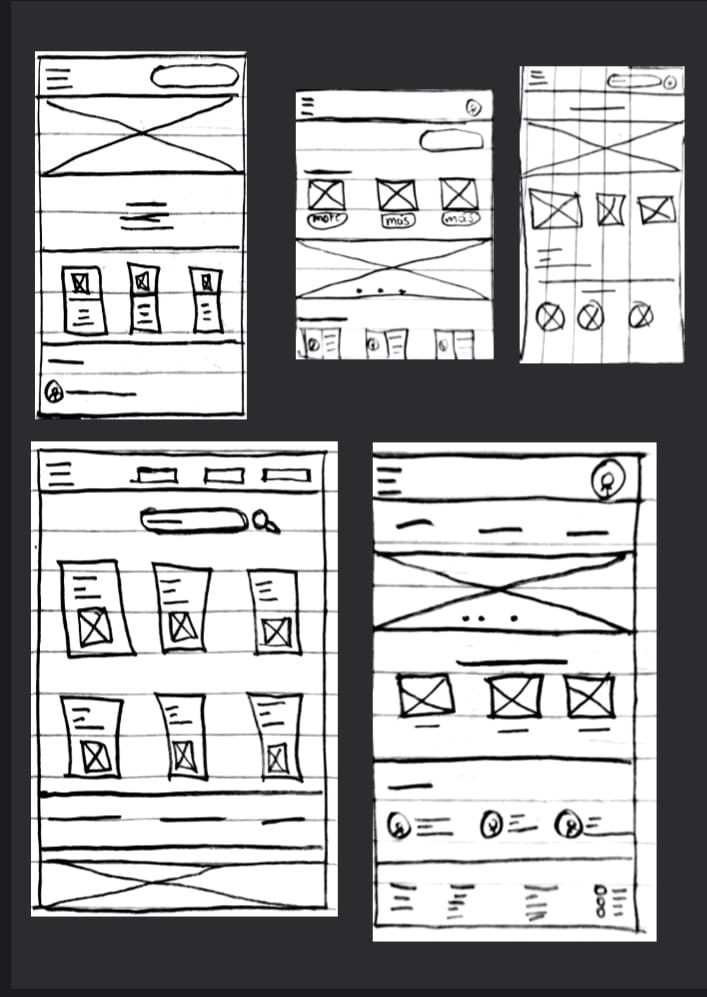 more
más
más